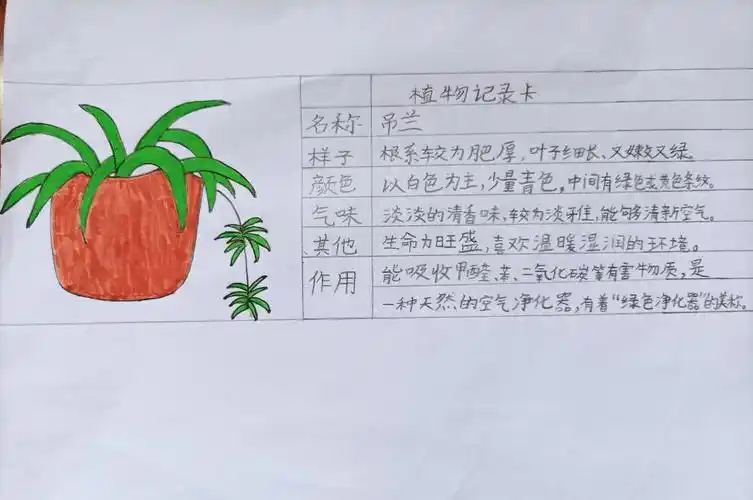 植物记录卡
名称 吊兰
样子 根系较为肥厚，叶子细长、又嫩又绿。
颜色 以白色为主，少量青色。中间有绿色或黄色条纹。
气味 淡淡的清香味，较为淡雅，能够清新空气。
其他 生命力旺盛，喜欢温暖湿润的环境。
作用 能吸收甲醛、苯、二氧化碳等有害物质，是
一种天然的空气净化器，有着“绿色净化器”的美称。